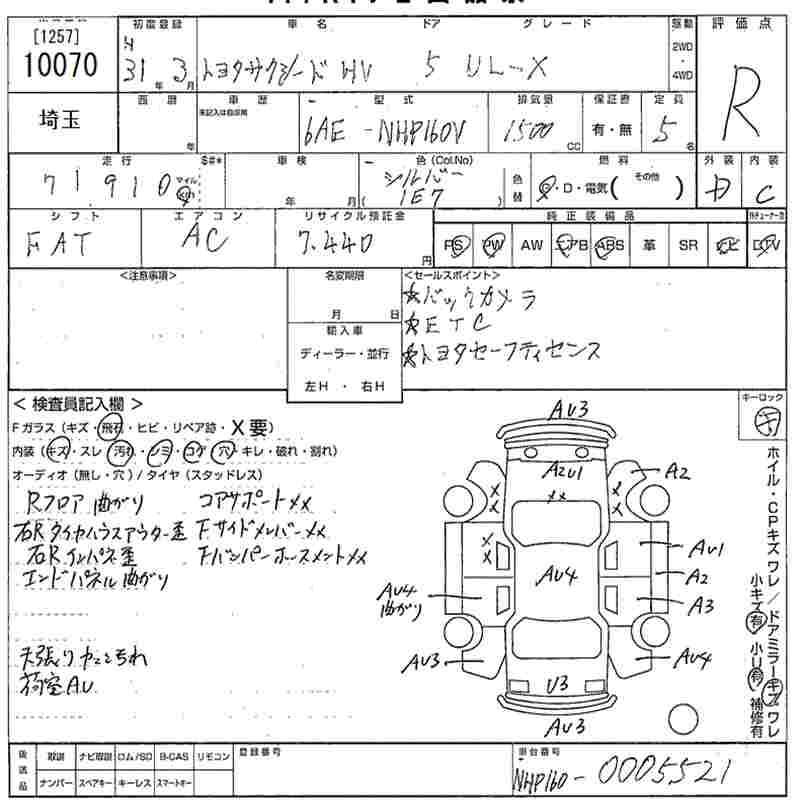 [1257]
10070
埼玉
初度登録
H
31年 3月
車名
トヨタサクシード HV
ドア
5
グレード
UL-X
駆動
2WD
・
4WD
評価点
R
西暦
年
車歴
未記入は自家用
型式
6AE - NHP160V
排気量
1500
CC
保証書
有・無
定員
5
名
走行
$#*
71,910
マイル
km
車検
年 月
色 (Col.No)
シルバー
( 1E7 )
色替
燃料
G・D・電気( その他 )
外装
D
内装
C
シフト
FAT
エアコン
AC
リサイクル預託金
7,440
円
純正装備品
PS PW AW エアB ABS 革 SR ナビ DTV
<注意事項>
名変期限
月 日
輸入車
ディーラー・並行
左H ・ 右H
<セールスポイント>
☆バックカメラ
☆ETC
☆トヨタセーフティセンス
< 検査員記入欄 >
Fガラス (キズ・飛石・ヒビ・リペア跡・X要)
内装 (キズ・スレ・汚れ・シミ・コゲ・穴・キレ・破れ・割れ)
オーディオ (無し・穴) / タイヤ (スタッドレス)
Rフロア曲がり コアサポートXX
右Rタイヤハウスアウター歪 FサイドメンバーXX
右Rインパネ歪 FバンパーホースメントXX
エンドパネル曲がり
天張りヤニこちれ
荷室AU
キーロック
キ
AU3
A2U1
A2
XX
XX
XX
XX
AU1
AU4
A2
AU4
曲がり
A3
AU3
AU4
U3
AU3
ホイル・CPキズ ワレ / ドアミラーキズ ワレ
小キズ有 小U有 補修有
後送品
取説 ナビ取説 ロム/SD B-CAS リモコン
ナンバー スペアキー キーレス スマートキー
登録番号
車台番号
NHP160- 0005521